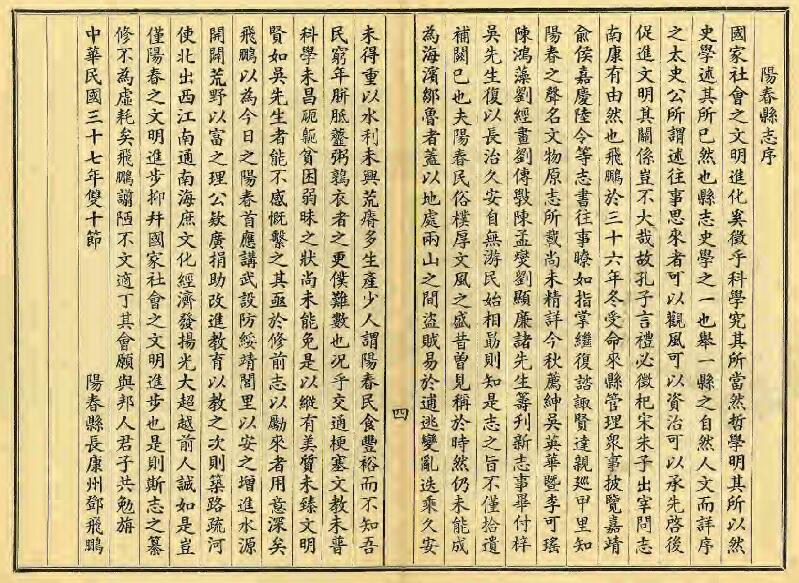 陽春縣志序
國家社會之文明進化奚徵乎科學究其所當然哲學明其所以然
史學述其所已然也縣志史學之一也舉一縣之自然人文而詳序
之太史公所謂述往事思來者可以觀風可以資治可以承先啓後
促進文明其關係豈不大哉故孔子言禮必徵杞宋朱子出宰問志
南康有由然也飛鵬於三十六年冬受命來縣管理眾事披覽嘉靖
俞侯嘉慶陸令等志書往事瞭如指掌繼復諮諏賢達親廵甲里知
陽春之聲名文物原志所載尚未精詳今秋薦紳吳英華暨李可瑤
陳鴻藻劉經畫劉傳敎陳孟爕劉顯廉諸先生籌刊新志事畢付梓
吳先生復以長治久安自無游民始相勗則知是志之旨不僅拾遺
補闕已也夫陽春民俗樸厚文風之盛昔曾見稱於時然仍未能成
為海濱鄒魯者蓋以地處兩山之間盜賊易於逋逃變亂迭乘久安
四
未得重以水利未興荒瘠多生產少人謂陽春民食豐裕而不知吾
民窮年胼胝虀粥鶉衣者之更僕難數也况乎交通梗塞文教未普
科學未昌阨貧困弱昧之狀尚未能免是以縱有美質未臻文明
賢如吳先生者能不感慨繫之其亟於修前志以勵來者用意深矣
飛鵬以為今日之陽春首應講武設防綏靖閭里以安之增進水源
開闢荒野以富之理公欵廣捐助改進教育以教之次則築路疏河
使北出西江南通南海庶文化經濟發揚光大超越前人誠如是豈
僅陽春之文明進步抑拜國家社會之文明進步也是則斯志之纂
修不為虛耗矣飛鵬譾陋不文適丁其會願與邦人君子共勉旃
中華民國三十七年雙十節　陽春縣長康州鄧飛鵬